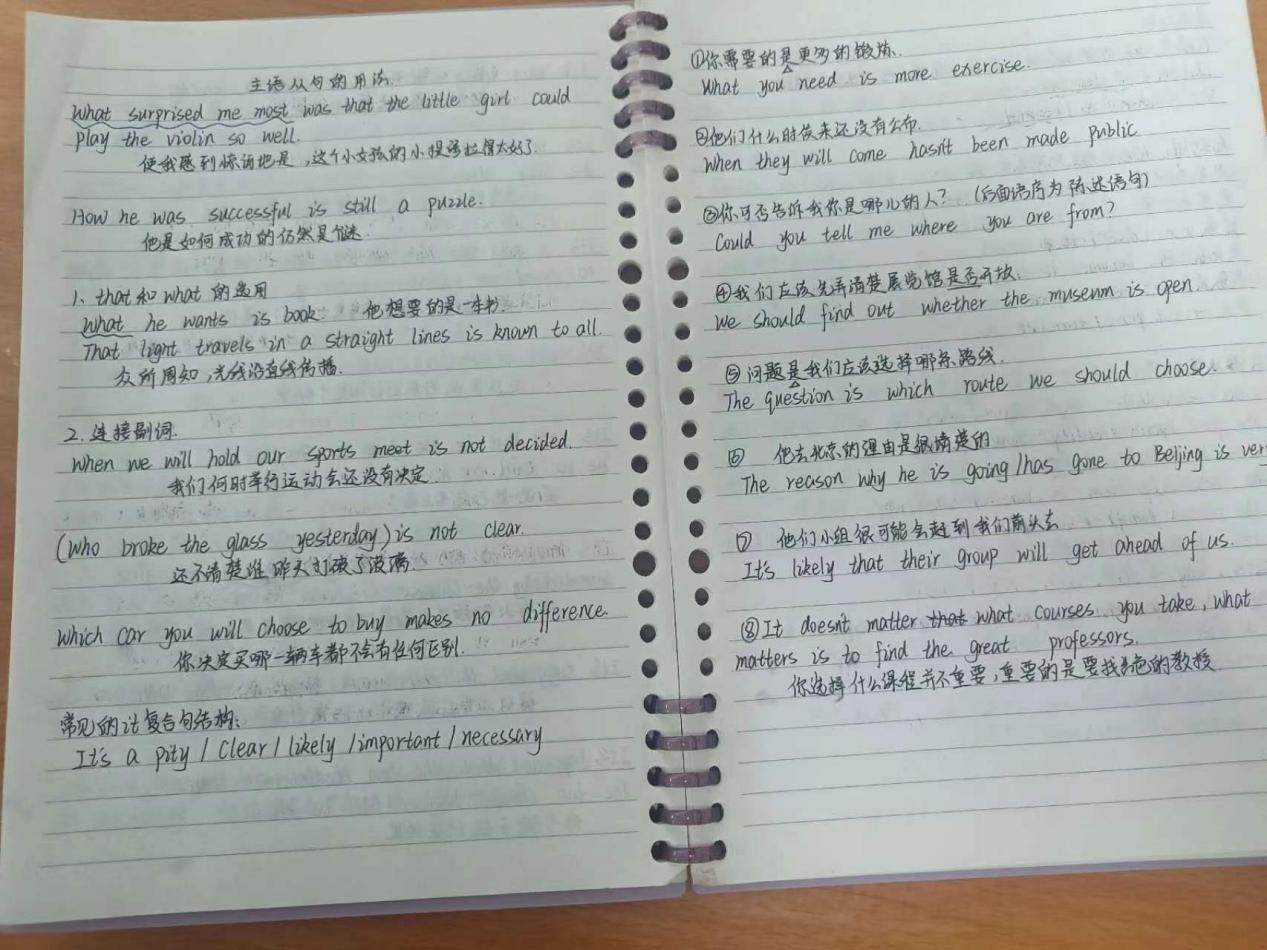 主语从句的用法.
What surprised me most was that the little girl could
play the violin so well.
使我感到惊讶地是，这个小女孩的小提琴拉得太好了.
How he was successful is still a puzzle.
他是如何成功的仍然是个谜.
1、that和what的选用
What he wants is book. 他想要的是一本书.
That light travels in a straight lines is known to all.
众所周知，光线沿直线传播.
2. 连接副词.
When we will hold our sports meet is not decided.
我们何时举行运动会还没有决定.
(Who broke the glass yesterday) is not clear.
还不清楚谁昨天打破了玻璃.
Which car you will choose to buy makes no difference.
你决定买哪一辆车都不会有任何区别.
常见的it复合句结构：
It's a pity / clear / likely / important / necessary
①你需要的是更多的锻炼.
What you need is more exercise.
②他们什么时候来还没有公布.
When they will come hasn't been made public
③你可否告诉我你是哪儿的人？（后面语序为陈述语句）
Could you tell me where you are from?
④我们应该先弄清楚展览馆是否开放.
We should find out whether the museum is open.
⑤问题是我们应该选择哪条路线.
The question is which route we should choose.
⑥ 他去北京的理由是很清楚的
The reason why he is going/has gone to Beijing is ver
⑦ 他们小组很可能会赶到我们前头去
It's likely that their group will get ahead of us.
⑧It doesn't matter that what courses you take, what
matters is to find the great professors.
你选择什么课程并不重要，重要的是要找出色的教授.